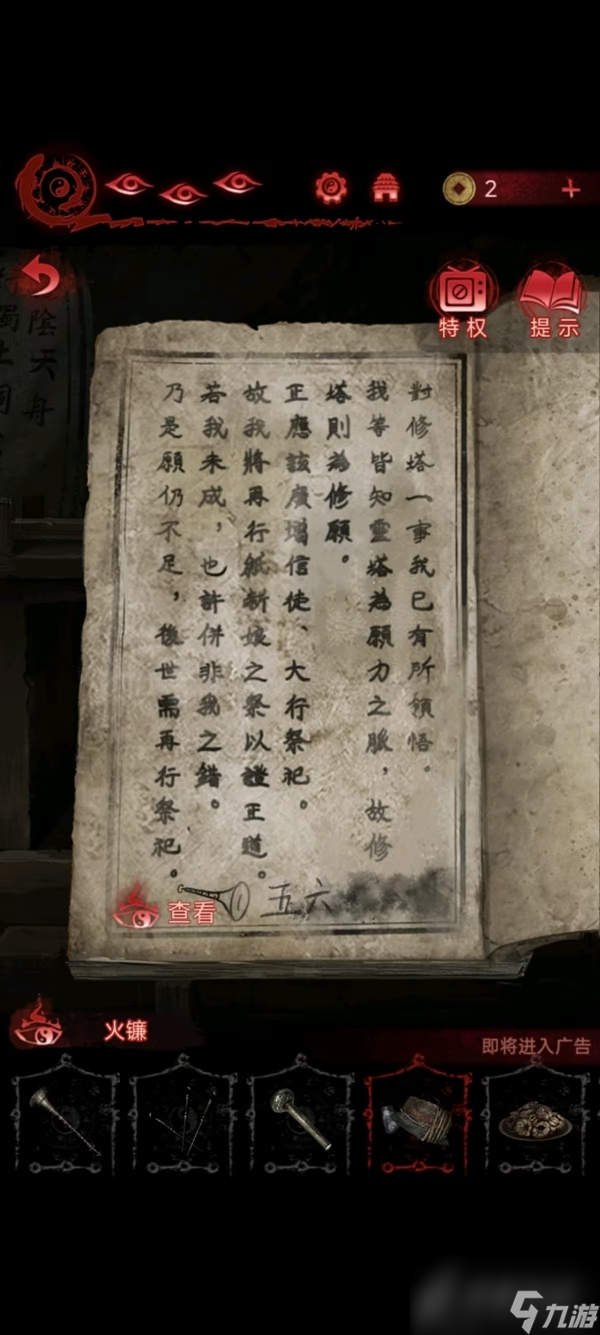 2
特权
提示
陰天舟
對修塔一事我已有所領悟。
我等皆知靈塔為願力之脈，故修
塔則為修願。
正應該廣增信徒、大行祭祀。
故我將再行紙新娘之祭以證正道。
若我未成，也許併非我之錯。
乃是願仍不足，後世需再行祭祀。
① 五六
查看
火镰
即将进入广告
九游